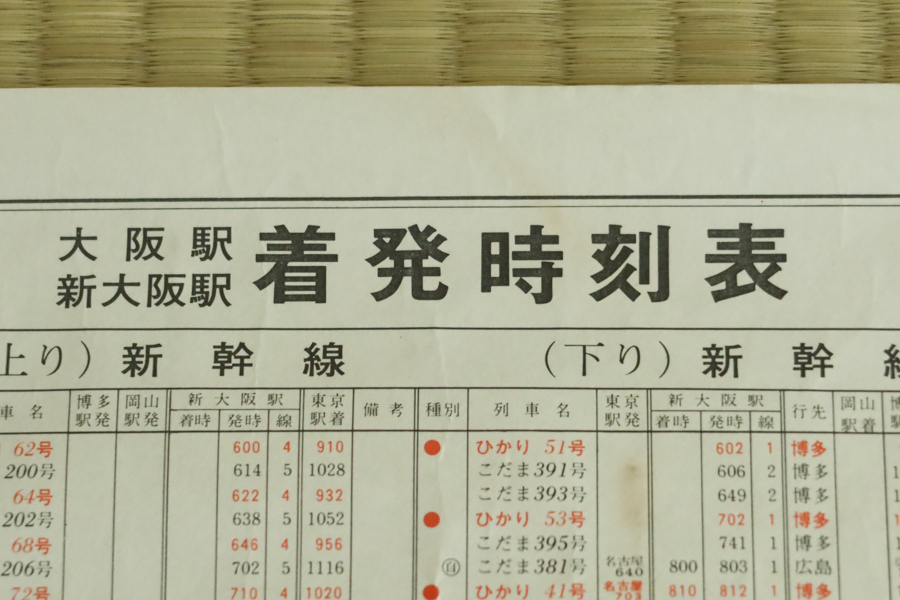 大阪駅
新大阪駅
着発時刻表
上り）新幹線
（下り）新幹
車名 博多駅発 岡山駅発 新大阪駅 着時 発時 線 東京駅着 備考 種別 列車名 東京駅発 新大阪駅 着時 発時 線 行先 岡山駅着
62号 600 4 910 ● ひかり 51号 602 1 博多
200号 614 5 1028 こだま 391号 606 2 博多
64号 622 4 932 こだま 393号 649 2 博多
202号 638 5 1052 ● ひかり 53号 702 1 博多
68号 646 4 956 こだま 395号 741 1 博多
206号 702 5 1116 ⑭ こだま 381号 名古屋 640 800 803 1 広島
72号 710 4 1020 ● ひかり 41号 名古屋 703 810 812 1 博多